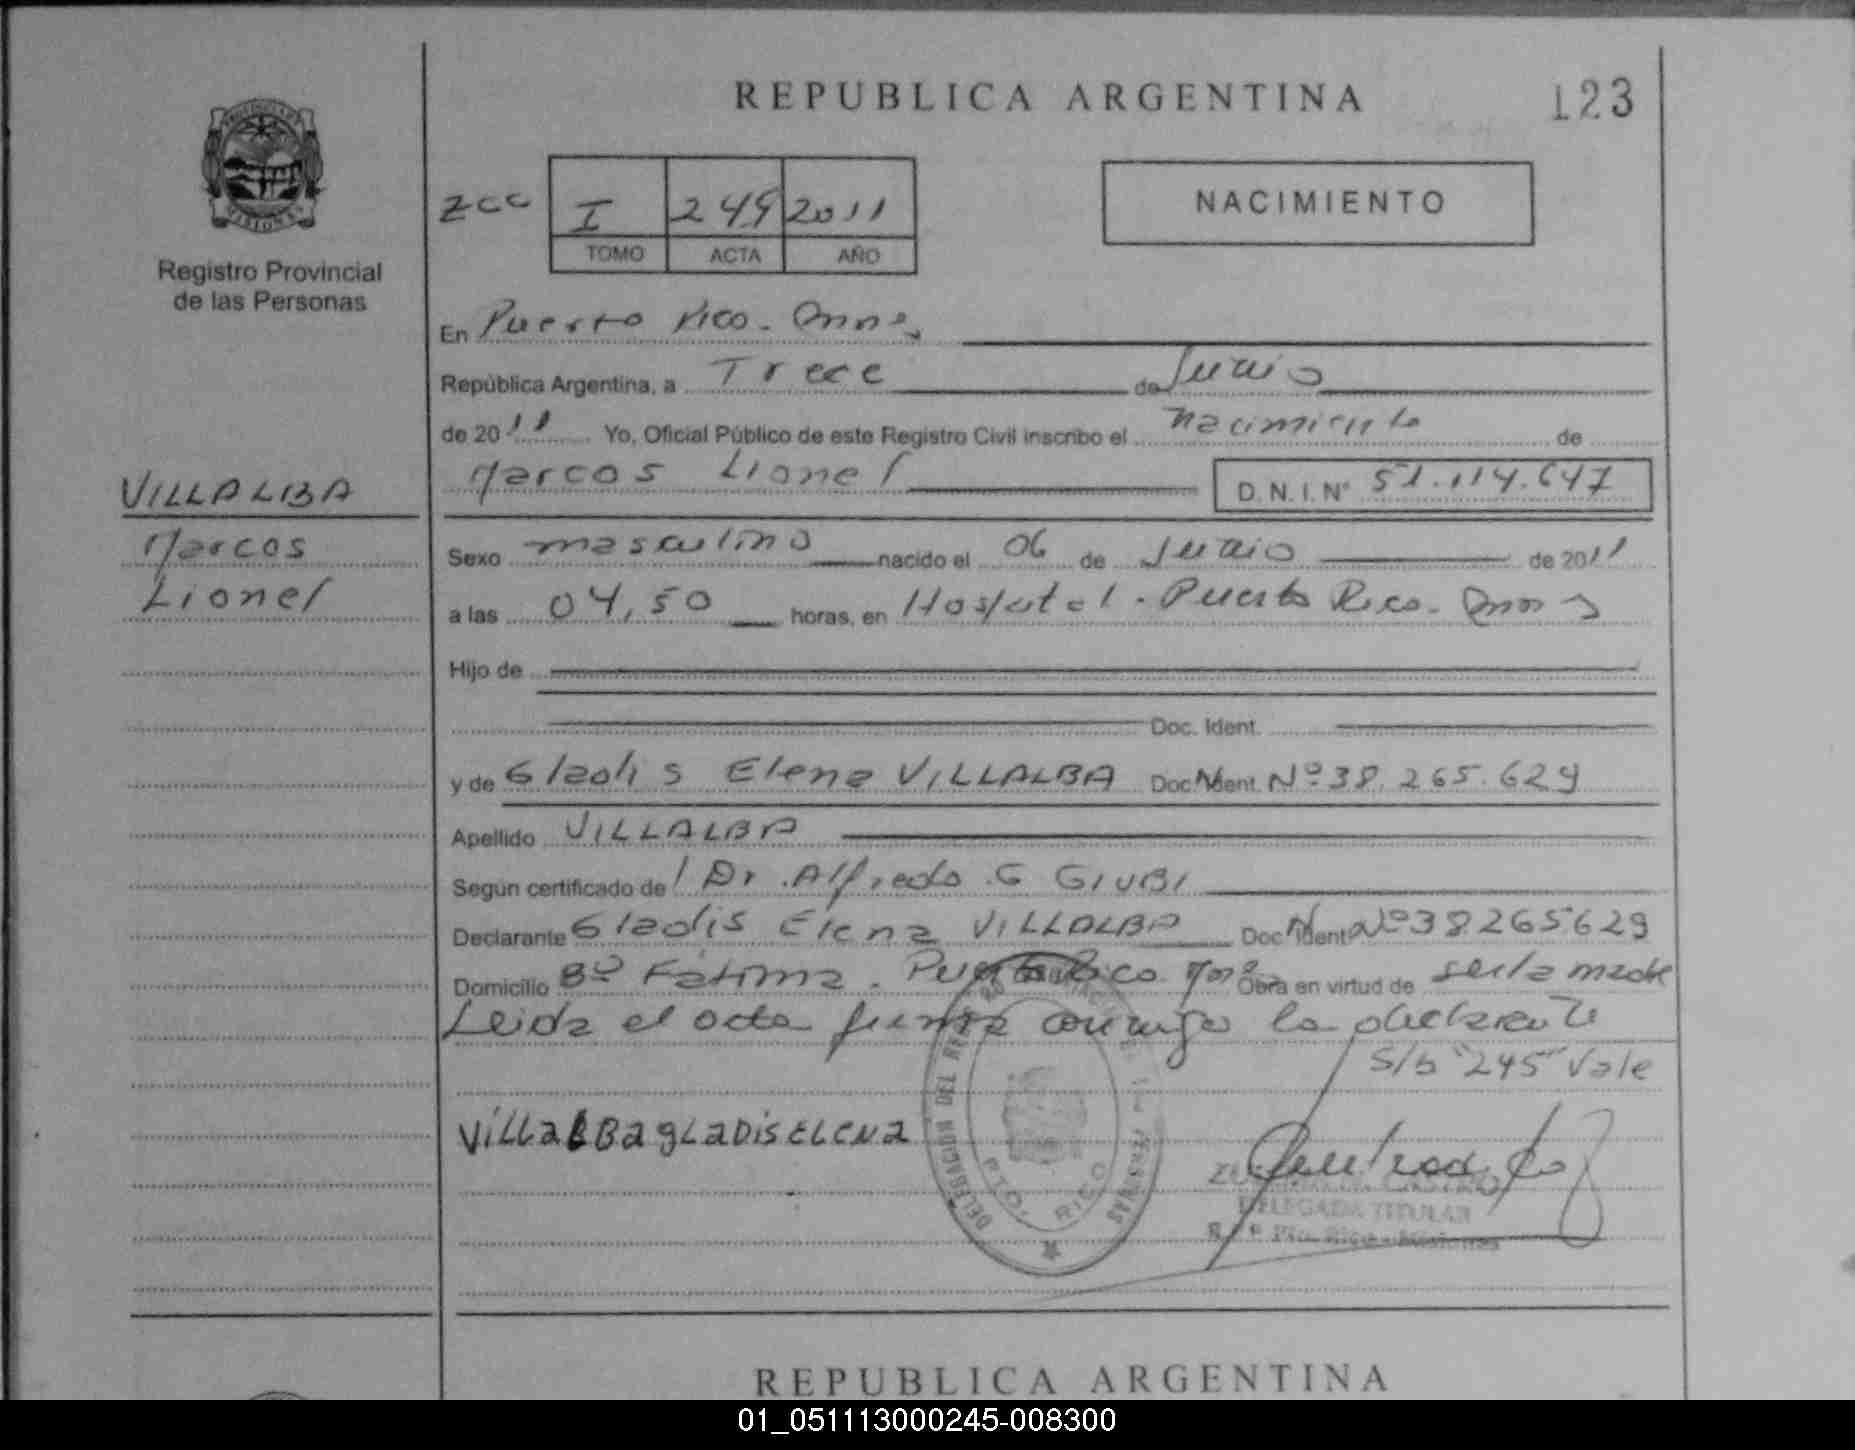 REPUBLICA ARGENTINA
123
PROVINCIA DE MISIONES
Registro Provincial
de las Personas
zcc
I 245 2011
TOMO ACTA AÑO
NACIMIENTO
En Puerto Rico. Mnes
República Argentina, a Trece de Junio
de 2011 Yo, Oficial Público de este Registro Civil inscribo el Nacimiento de
Marcos Lionel D.N.I. Nº 51.114.647
VILLALBA
Marcos
Lionel
Sexo masculino nacido el 06 de Junio de 2011
a las 04,50 horas, en Hospital. Puerto Rico. Mnes
Hijo de
Doc. Ident.
y de Gladis Elena VILLALBA Doc. Ident. Nº 38.265.629
Apellido VILLALBA
Según certificado de l Dr. Alfredo G GIUBI
Declarante Gladis Elena VILLALBA Doc. Ident. Nº 38265629
Domicilio Bº Fátima. Puerto Rico Obra en virtud de ser la madre
Leida el acta firma conmigo la declarante
S/b "245" Vale
ViLLaLBa gLaDis ELENA
DELEGACION DEL REGISTRO PROVINCIAL DE LAS PERSONAS
PTO. RICO
CASTRO
DELEGADA TITULAR
Pto. Rico - Misiones
REPUBLICA ARGENTINA
01_051113000245-008300